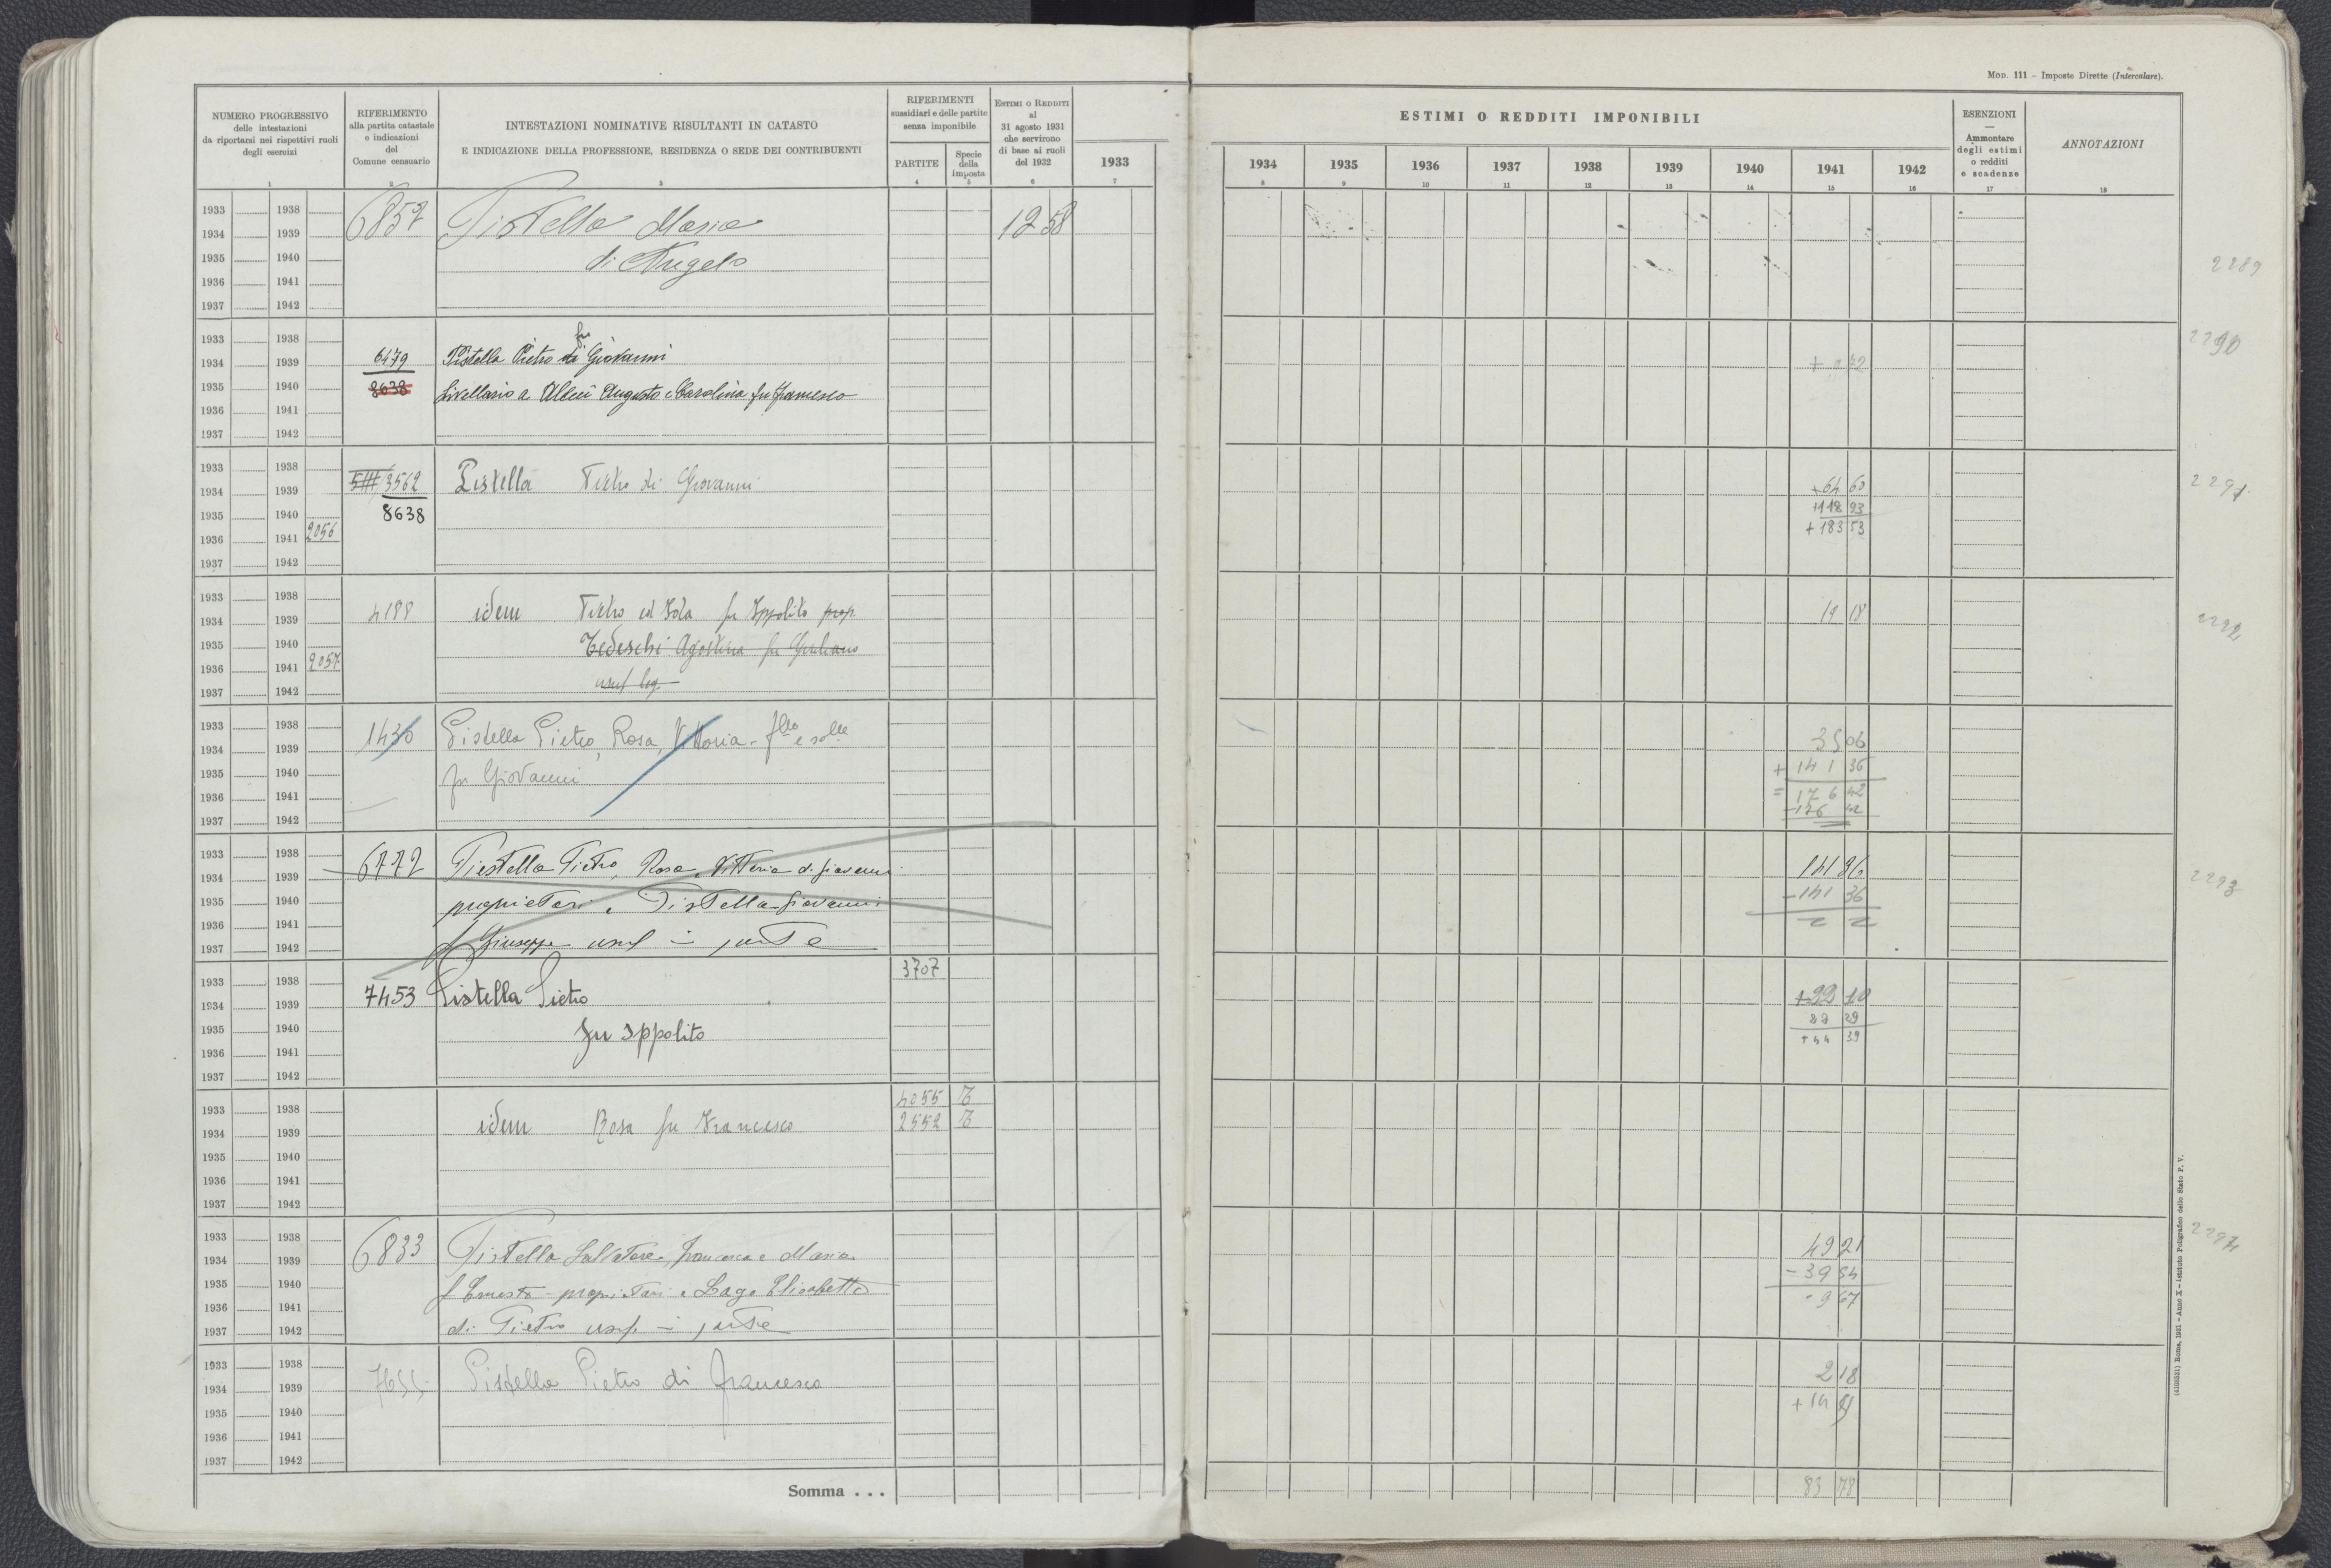 MOD. 111 – Imposte Dirette (Intercalare).
NUMERO PROGRESSIVO
delle intestazioni
da riportarsi nei rispettivi ruoli
degli esercizi
1
RIFERIMENTO
alla partita catastale
e indicazioni
del
Comune censuario
2
INTESTAZIONI NOMINATIVE RISULTANTI IN CATASTO
E INDICAZIONE DELLA PROFESSIONE, RESIDENZA O SEDE DEI CONTRIBUENTI
3
RIFERIMENTI
sussidiari e delle partite
senza imponibile
PARTITE
4
Specie
della
imposta
5
ESTIMI O REDDITI
al
31 agosto 1931
che servirono
di base ai ruoli
del 1932
6
ESTIMI O REDDITI IMPONIBILI
1933
7
1934
8
1935
9
1936
10
1937
11
1938
12
1939
13
1940
14
1941
15
1942
16
ESENZIONI
—
Ammontare
degli estimi
o redditi
e scadenze
17
ANNOTAZIONI
18
1933 1938
1934 1939
1935 1940
1936 1941
1937 1942
6857 Pistella Maria 12 58
di Angelo
2289
1933 1938
1934 1939
1935 1940
1936 1941
1937 1942
fu
6479 Pistella Pietro di Giovanni
8638 Livellario a Alleui Augusto e Carolina fu Francesco
2290
1933 1938
1934 1939
1935 1940
1936 1941 2056
1937 1942
3562 Pistella Pietro di Giovanni + 64 60
8638 + 118 93
+ 183 53
2291
1933 1938
1934 1939
1935 1940
1936 1941 2057
1937 1942
4188 idem Pietro ed Iola fu Ippolito prop. 19 18
Tedeschi Agostina fu Giuliano
usuf leg.
2292
1933 1938
1934 1939
1935 1940
1936 1941
1937 1942
1430 Pistella Pietro, Rosa, Vittoria - flli e solle 35 06
fu Giovanni + 141 36
= 176 42
- 176 42
1933 1938
1934 1939
1935 1940
1936 1941
1937 1942
6772 Pistella Pietro, Rosa, Vittoria di Giovanni 141 36
proprietari e Pistella Giovanni - 141 36
f Giuseppe usuf in parte
2293
1933 1938
1934 1939
1935 1940
1936 1941
1937 1942
3707
7453 Pistella Pietro + 22 10
fu Ippolito 22 29
+ 44 39
1933 1938
1934 1939
1935 1940
1936 1941
1937 1942
4055 T
idem Rosa fu Francesco 2552 T
1933 1938
1934 1939
1935 1940
1936 1941
1937 1942
6833 Pistella Salvatore, Francesca e Maria 49 21
f Ernesto - proprietari e Lago Elisabetta - 39 54
di Pietro usuf. in parte 9 67
2294
1933 1938
1934 1939
1935 1940
1936 1941
1937 1942
7655 Pistella Pietro di Francesco 2 18
+ 14
Somma . . . 83 78
(4100521) Roma, 1931 - Anno X - Istituto Poligrafico dello Stato P. V.